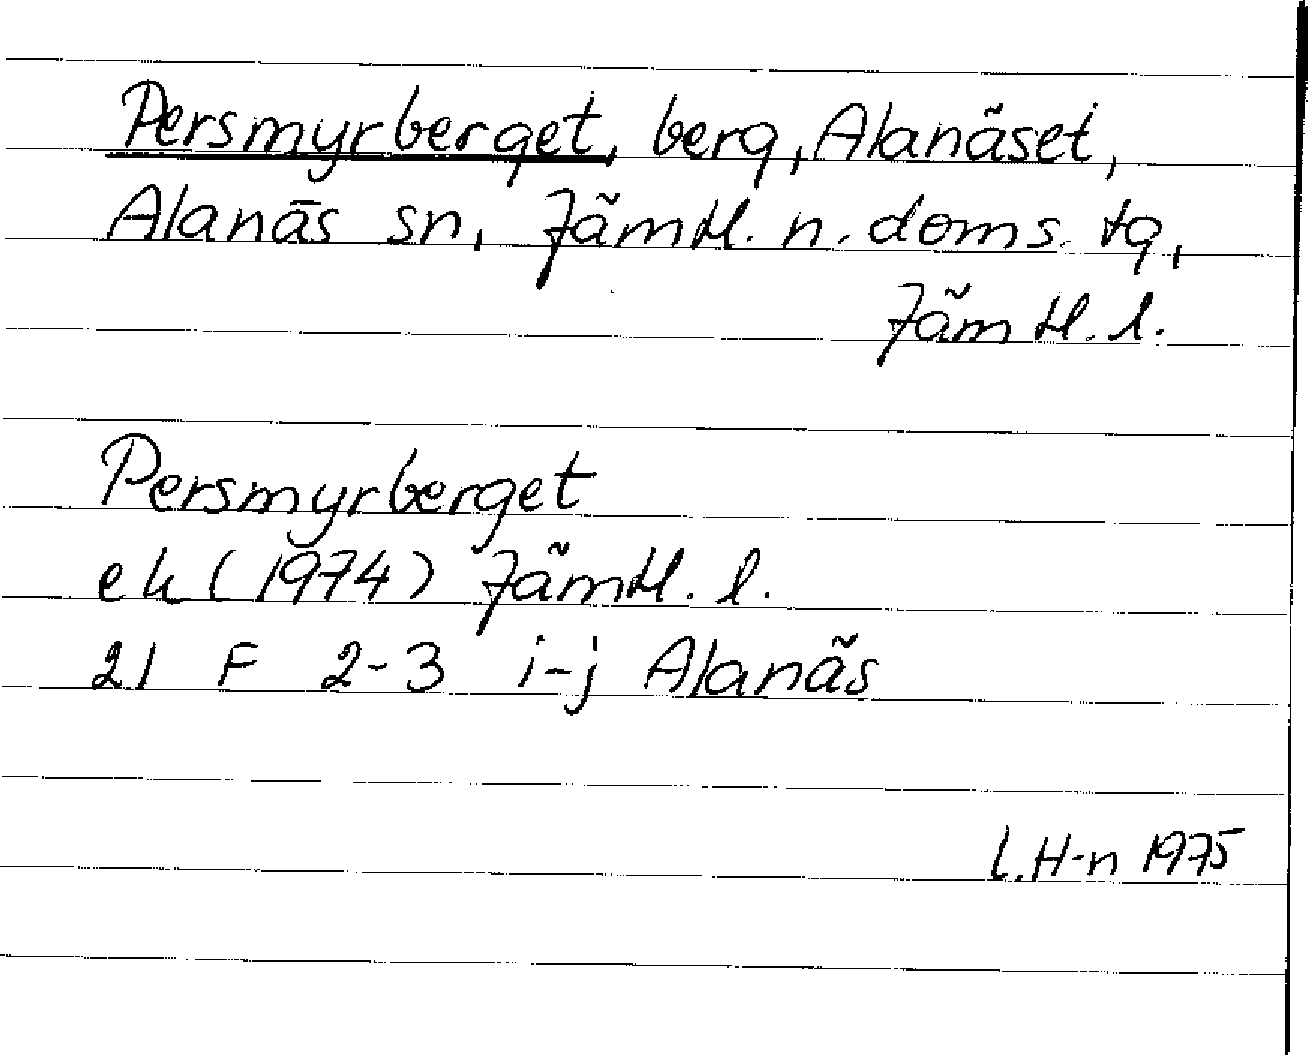 Persmyrberget, berg, Alanäset,
Alanäs sn, Jämtl. n. doms. tg,
Jämtl. l.
Persmyrberget
ek (1974) Jämtl. l.
21 F 2-3 i-j Alanäs
L.H-n 1975